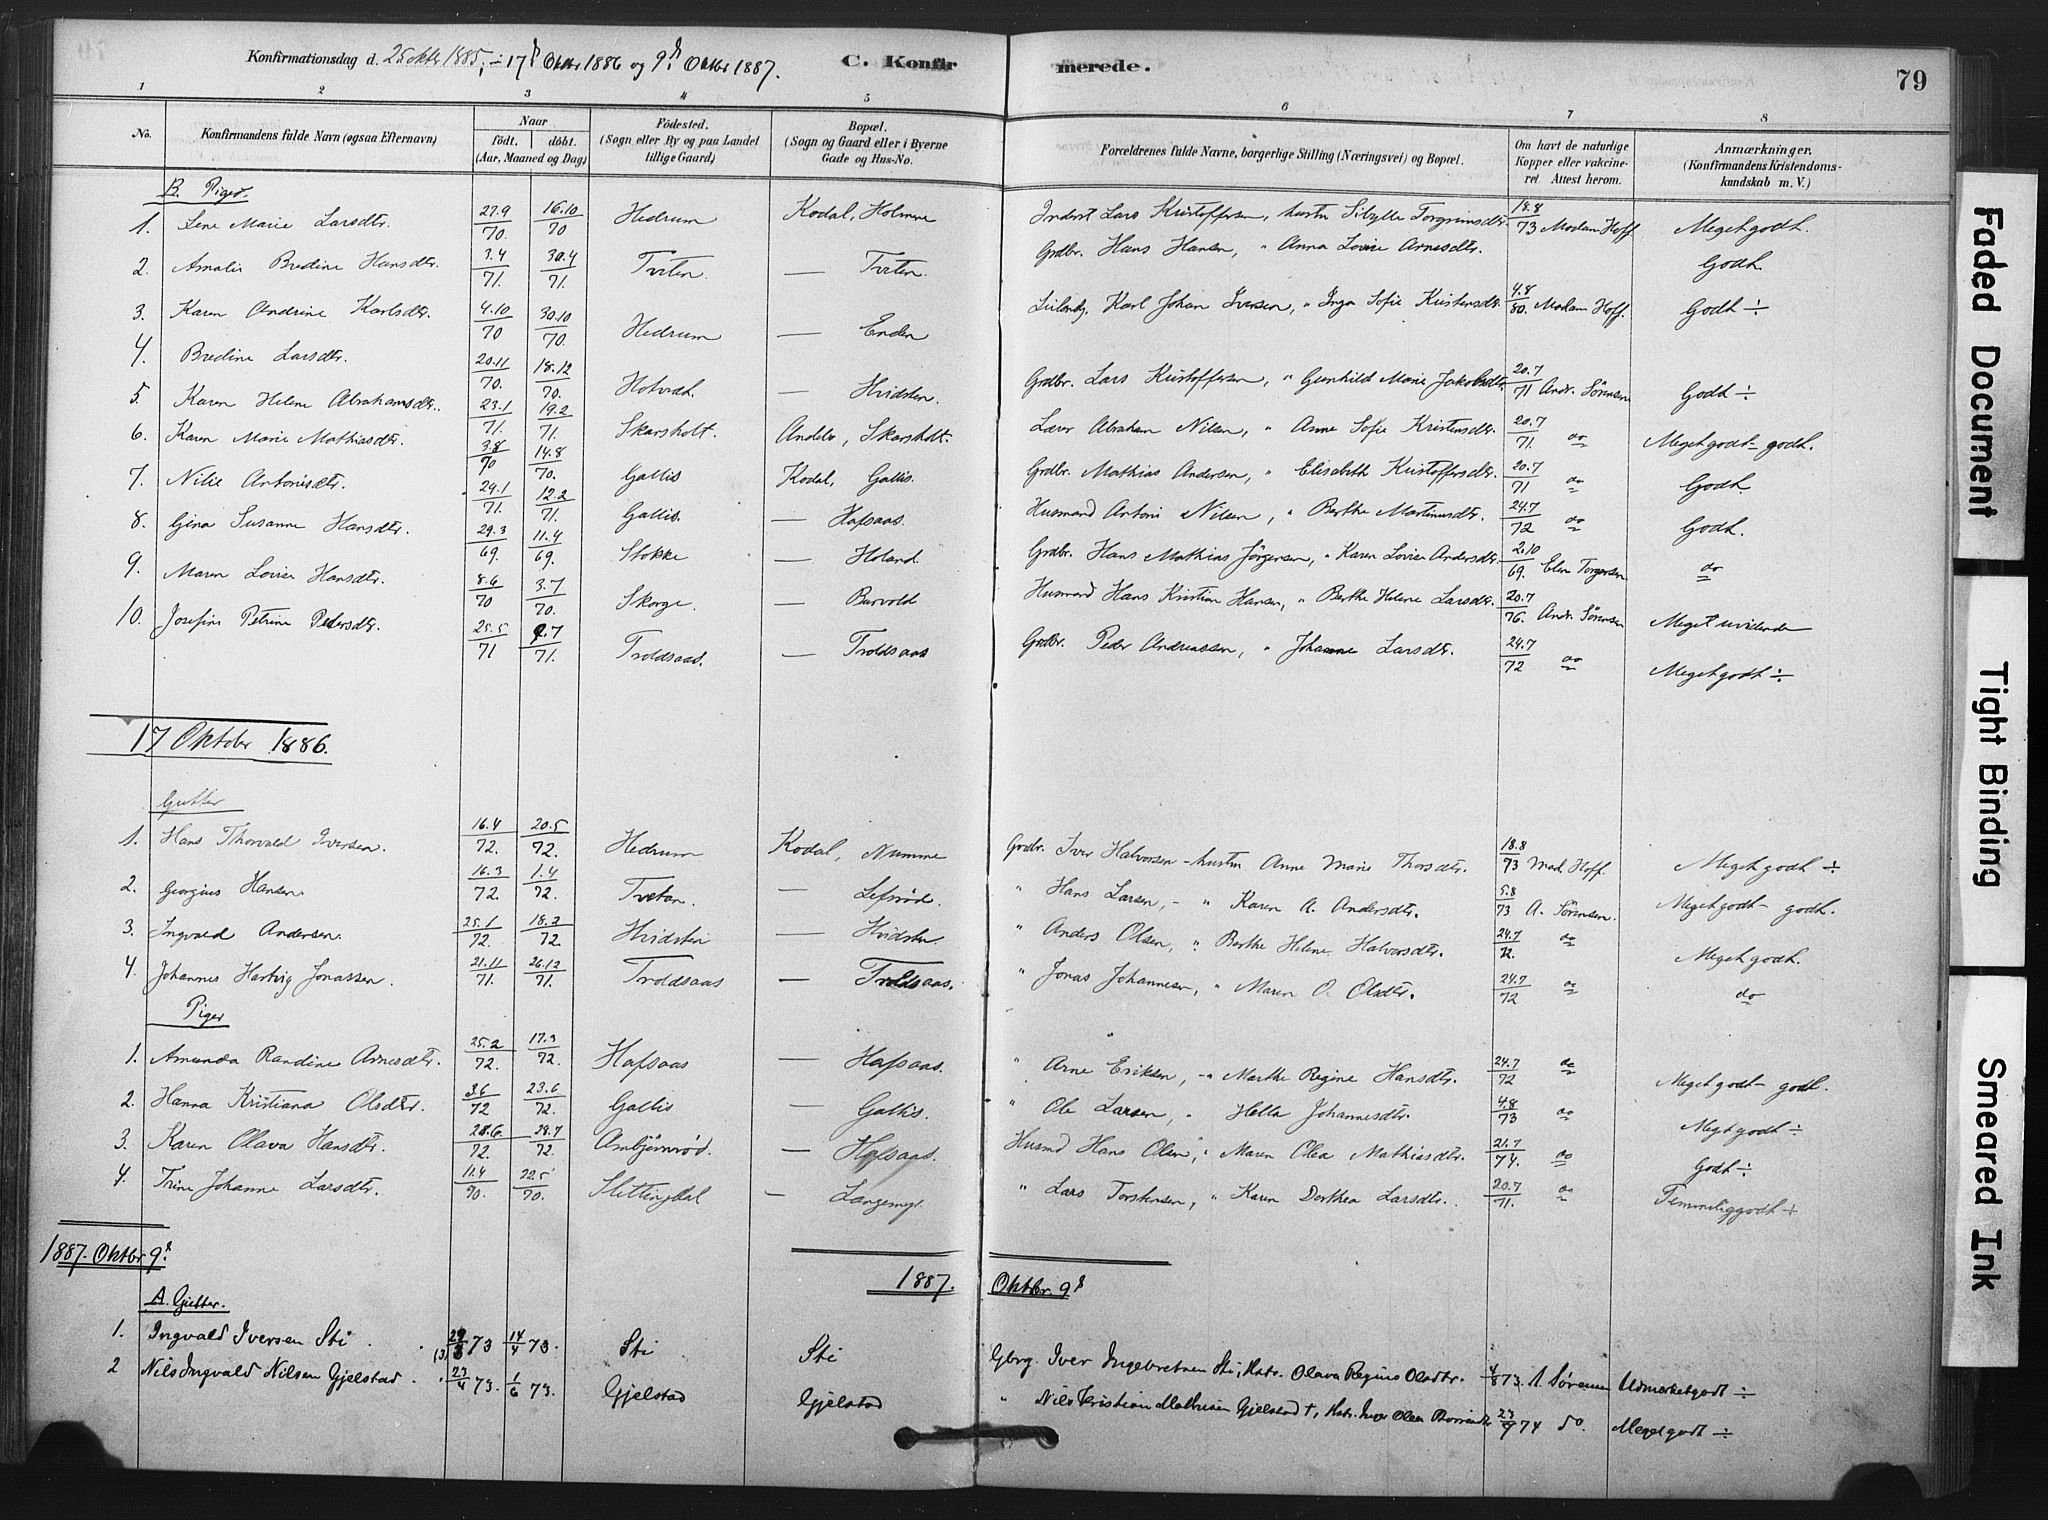 Konfirmationsdag d. 25 oktr 1885, ÷ 17d Oktbr 1886 og 9d Oktbr 1887. C. Konfir merede. 79
1 2 3 4 5 6 7 8
No. Konfirmandens fulde Navn (ogsaa Efternavn) Naar födt. döbt. (Aar, Maaned og Dag) Födested. (Sogn eller By og paa Landet tillige Gaard) Bopæl. (Sogn og Gaard eller i Byerne Gade og Hus-No. Forældrenes fulde Navne, borgerlige Stilling (Næringsvei) og Bopæl. Om havt de naturlige Kopper eller vakcineret Attest herom. Anmærkninger. (Konfirmandens Kristendomskundskab m. V.)
B. Piger.
1. Lene Marie Larsdtr. 27.9/70. 16.10/70 Hedrum Kodal, Holmene Inderst Lars Kristoffersen, hustru Sibylle Torgrimsdtr. 18.8/73 Madam Hoff Meget godt.
2. Amalie Bredine Hansdtr. 3.4/71. 30.4/71. Tviten. — Tviten. Grdbr. Hans Hansen, " Anna Lovise Arnesdtr. Godt.
3. Karen Andrine Karlsdtr. 4.10/70 30.10/70. Hedrum — Enden Leilændg. Karl Johan Iversen, " Inga Sofie Kristensdtr. 4.8/80. Madam Hoff. Godt ÷
4. Bredine Larsdtr. 20.11/70. 18.12/70. Hotvedt — Hvidsten. Grdbr. Lars Kristoffersen, " Gunhild Marie Jakobsdtr. 20.7/71 Andr. Sørensen Godt ÷
5. Karen Helene Abrahamsdtr. 23.1/71. 19.2/71. Skarsholt. Andebo, Skarsholt. Lærer Abraham Nilsen, " Anne Sofie Kristensdtr. 20.7/71. do Meget godt - godt.
6. Karen Marie Mathiasdtr. 3.8/70 14.8/70. Gallis Kodal, Gallis. Grdbr. Mathias Andersen, " Elisabeth Kristoffersdtr. 20.7/71 do Godt.
7. Nilie Antonisdtr. 29.1/71. 12.2/71. Gallis. — Hafsaas. Husmand Antoni Nilsen, " Berthe Martinusdtr. 24.7/72 do Godt.
8. Gina Susanne Hansdtr. 29.3/69. 11.4/69. Stokke — Holand Grdbr. Hans Mathias Jörgensen, " Karen Lovise Andersdtr. 2.10/69. Elen Torgersen do
9. Maren Lovise Hansdtr. 8.6/70 3.7/70. Skorge. — Burvold Husmand Hans Kristian Hansen, " Berthe Helene Larsdtr. 20.7/76. Andr. Sørensen Meget uvidende
10. Josefine Petrine Pedersdtr. 25.5/71 2.7/71. Troldsaas. — Troldsaas Grdbr. Peder Andreassen, " Johanne Larsdtr. 24.7/72 do Meget godt ÷
17 Oktober 1886.
Gutter
1. Hans Thorvald Iversen. 16.4/72. 20.5/72. Hedrum Kodal, Numme Grdbr. Iver Halvorsen - hustru Anne Marie Thorsdtr. 18.8/73 Mad. Hoff. Meget godt ÷
2. Georgius Hansen. 16.3/72. 1.4/72. Tvetan. — Lefsrød. " Hans Larsen, - " Karen A. Andersdtr. 5.8/73. A. Sørensen. Meget godt - godt.
3. Ingvald Andersen. 25.1/72. 18.2/72 Hvidsten — Hvidsten. " Anders Olsen, " Berthe Helene Halvorsdtr. 24.7/72. do Meget godt.
4. Johannes Hartvig Jonassen. 21.11/71. 26.12/71. Troldsaas — Troldsaas. " Jonas Johannesen, " Maren O. Olsdtr. 24.7/72 do do
Piger
1. Amunda Randine Arnesdtr. 25.2/72. 17.3/72. Hafsaas — Hafsaas. " Arne Eriksen, - " Marthe Regine Hansdtr. 24.7/72 do Meget godt - godt.
2. Hanna Kristiana Olsdtr. 3.6/72 23.6/72. Gallis — Gallis. " Ole Larsen, " Hella Johannesdtr. 4.8/73 do Meget godt ÷
3. Karen Olava Hansdtr. 28.6./72. 28.7/72. Ambjörnrød. — Hafsaas. Husmd Hans Olsen, " Maren Olea Mathiasdtr. 21.7/74. do Godt ÷
4. Trine Johanne Larsdtr. 11.4/70. 22.5/70. Slettingdal — Langemyr. " Lars Torstensen, " Karen Dorthea Larsdtr. 20.7/71. do Temmelig godt ÷
1887. Oktbr 9d. 1887. Oktbr. 9d
A. Gutter.
1. Ingvald Iversen Sti . (3) 73 14/4 73. Sti Sti Gbrg. Iver Ingebretsen Sti, Hstr. Olava Regine Olsdtr. 4/8 73. A Sørensen Udmerket godt ÷
2 Nils Ingvald Nilsen Gjelstad . 23/4 73. 1/6 73. Gjelstad Gjelstad " Nils Kristian Mathisen Gjelstad †, Hstr. Inger Olea 23/9 74 do. Meget godt ÷
Faded Document
Tight Binding
Smeared Ink